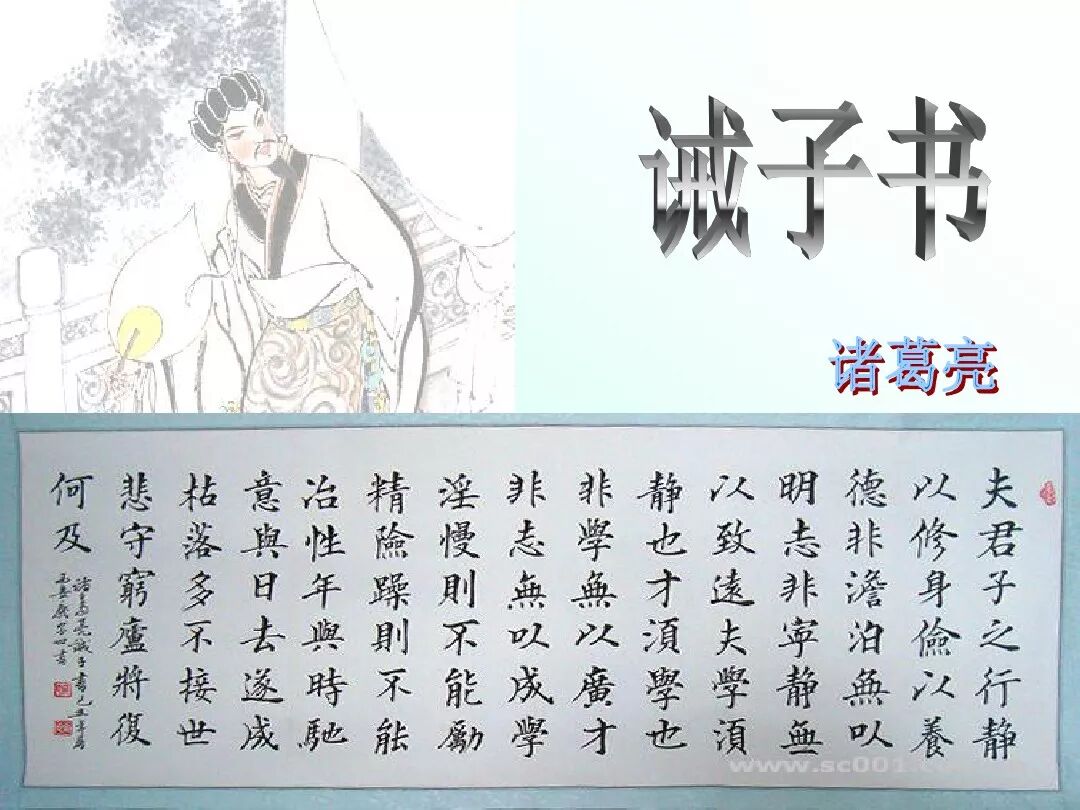 诫子书
诸葛亮
夫君子之行静
以修身儉以養
德非澹泊無以
明志非寧静無
以致遠夫學須
静也才須學也
非學無以廣才
非志無以成學
淫慢則不能勵
精險躁則不能
冶性年與時馳
意與日去遂成
枯落多不接世
悲守窮廬將復
何及
諸葛亮誡子書己丑年
www.sc001.c